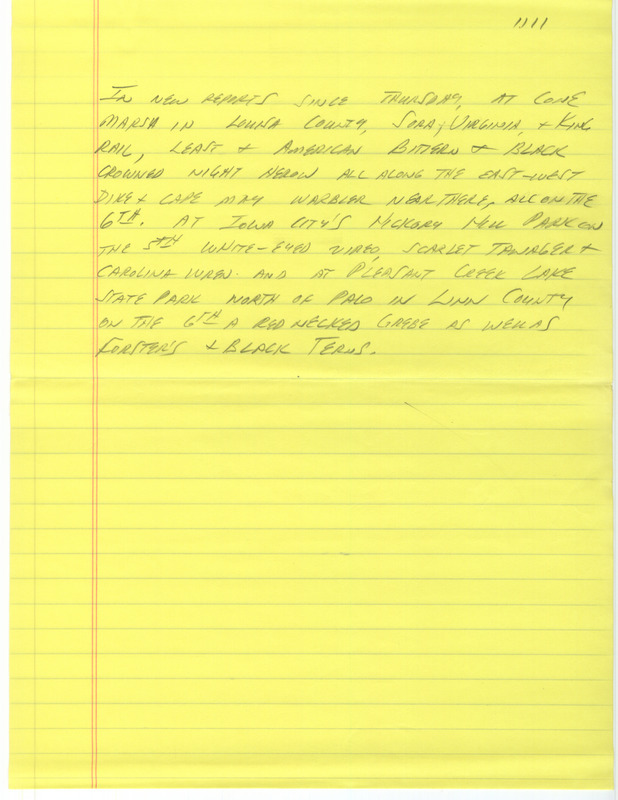 1111
IN NEW REPORTS SINCE THURSDAY, AT CONE
MARSH IN LOUISA COUNTY, SORA, VIRGINIA, + KING
RAIL, LEAST + AMERICAN BITTERN + BLACK
CROWNED NIGHT HERON ALL ALONG THE EAST-WEST
DIKE + CAPE MAY WARBLER NEAR THERE, ALL ON THE
6TH. AT IOWA CITY'S HICKORY HILL PARK ON
THE 5TH WHITE-EYED VIREO, SCARLET TANAGER +
CAROLINA WREN. AND AT PLEASANT CREEK LAKE
STATE PARK NORTH OF PALO IN LINN COUNTY
ON THE 6TH A RED NECKED GREBE AS WELL AS
FORSTER'S + BLACK TERNS.